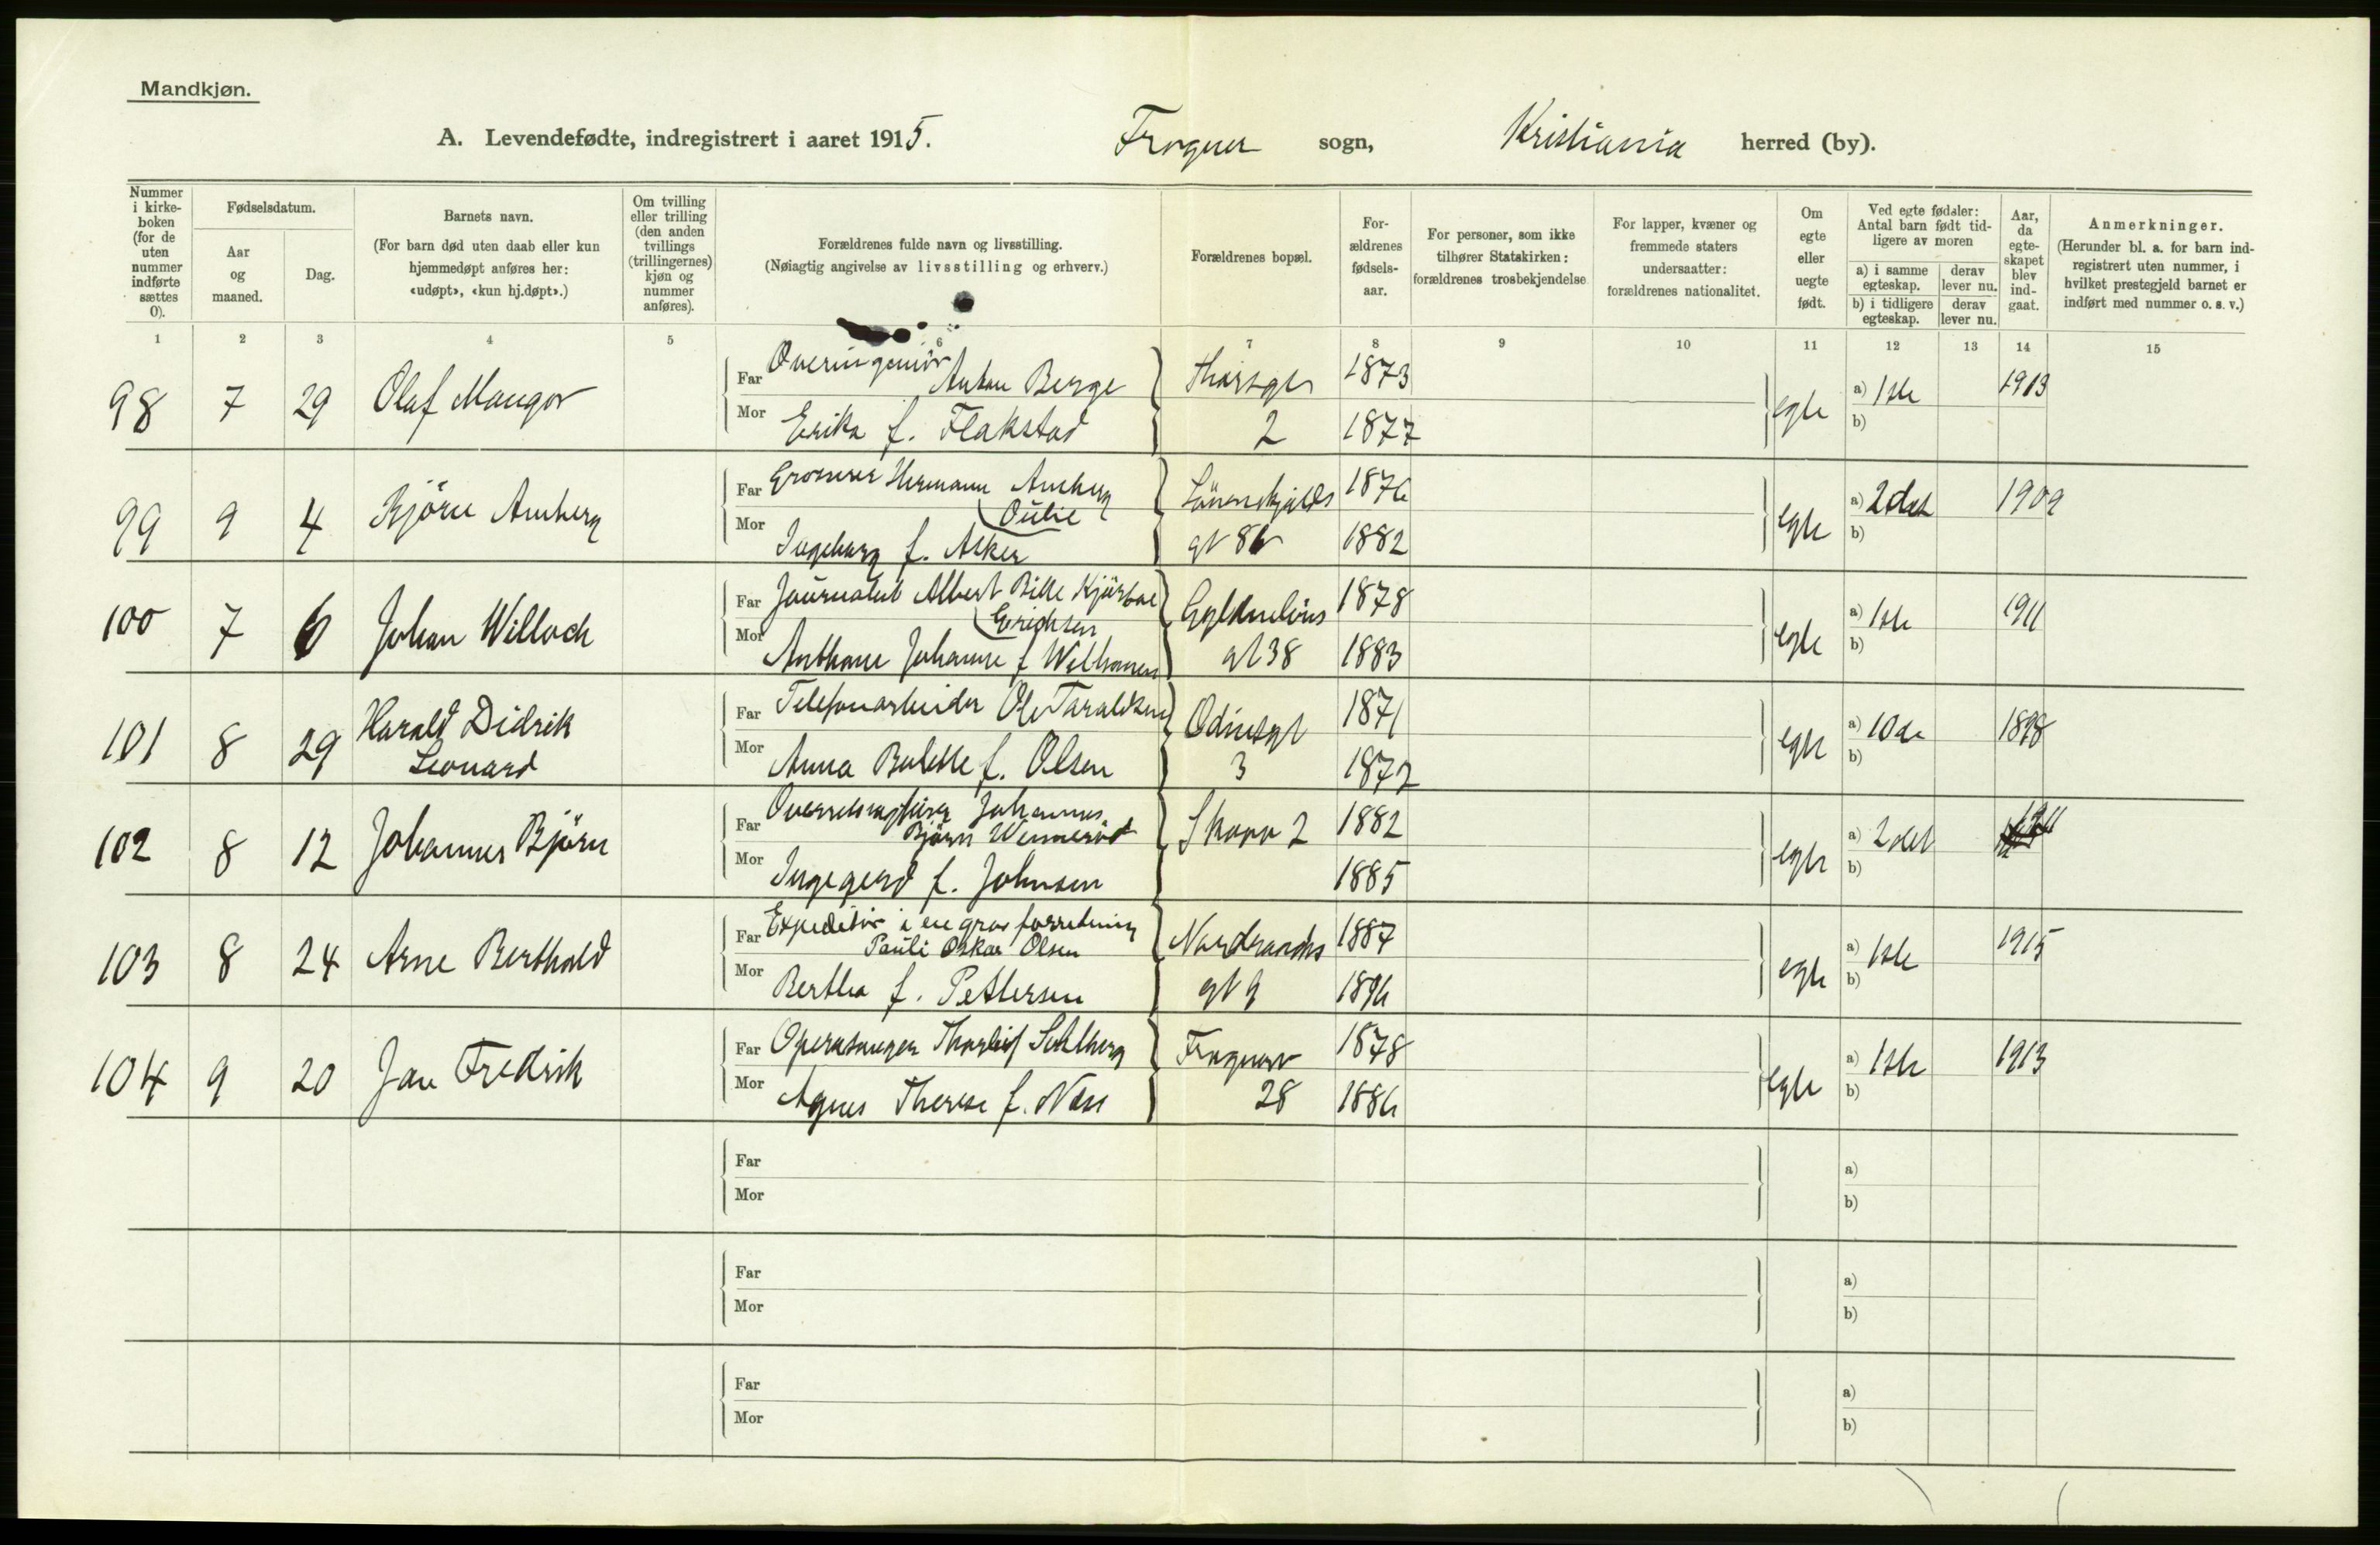 Mandkjøn.
A. Levendefødte, indregistrert i aaret 1915. Frogner sogn, Kristiania herred (by).
Nummer i kirke-boken (for de uten nummer indførte sættes 0).
Fødselsdatum.
Aar og maaned.
Dag.
Barnets navn.
(For barn død uten daab eller kun hjemmedøpt anføres her: «udøpt», «kun hj.døpt».)
Om tvilling eller trilling (den anden tvillings (trillingernes) kjøn og nummer anføres).
Forældrenes fulde navn og livsstilling.
(Nøiagtig angivelse av livsstilling og erhverv.)
Forældrenes bopæl.
For-ældrenes fødsels-aar.
For personer, som ikke tilhører Statskirken: forældrenes trosbekjendelse
For lapper, kvæner og fremmede staters undersaatter: forældrenes nationalitet.
Om egte eller uegte født.
Ved egte fødsler: Antal barn født tid-ligere av moren
a) i samme egteskap.
derav lever nu.
b) i tidligere egteskap.
derav lever nu.
Aar, da egte-skapet blev ind-gaat.
Anmerkninger.
(Herunder bl. a. for barn ind-registrert uten nummer, i hvilket prestegjeld barnet er indført med nummer o. s. v.)
1 2 3 4 5 6 7 8 9 10 11 12 13 14 15
98 7 29 Olaf Mangor Far Overingeniør Anton Berge Thorsgt 1873 egte a) 1ste 1913
Mor Erika f. Flakstad 2 1877 b)
99 9 4 Bjørn Amberg Far Grosserer Hermann Amberg 1876 egte a) 2det 1909
Oulie
Mor Ingeborg f. Asker gt 8 1882 b)
100 7 6 Johan Willoch Far Journalist Albert Bille Kjørboe Gyldenløves 1878 egte a) 1ste 1911
Erichsen
Mor Johanne f gt 38 1883 b)
101 8 29 Harald Didrik Far Telefonarbeider Ole Taraldsen Odinsgt 1871 egte a) 10de 1898
Leonard Mor Anna Bolette f. Olsen 3 1872 b)
102 8 12 Johannes Bjørn Far Overretssagfører Johannes
Bjørn Wennerød Skovv 2 1882 egte a) 2det 1911
Mor Ingegerd f. Johnsen 1885 b)
103 8 24 Arne Berthold Far Expeditør i en gros forretning
Pauli Oskar Olsen Nordraaks 1887 egte a) 1ste 1915
Mor Bertha f. Pettersen gt 9 1896 b)
104 9 20 Jan Fredrik Far Operasanger Thorleif Sohlberg Frognerv 1878 egte a) 1ste 1913
Mor Agnes Therese f. Næss 28 1886 b)
Far a)
Mor b)
Far a)
Mor b)
Far a)
Mor b)